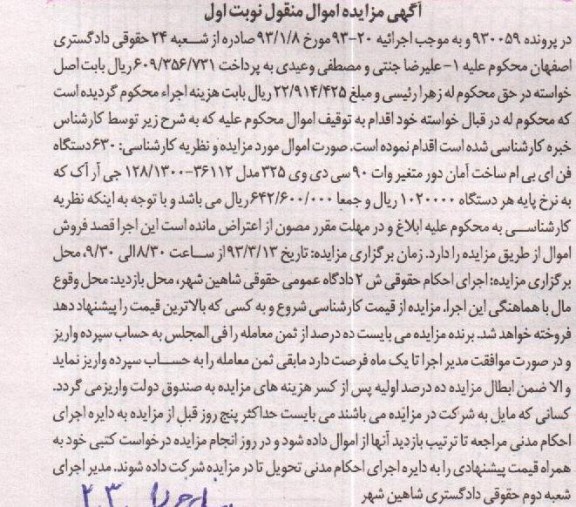 آگهی مزایده اموال منقول نوبت اول
در پرونده ۹۳۰۰۵۹ و به موجب اجرائیه ۲۰-۹۳ مورخ ۹۳/۱/۸ صادره از شـــعبه ۲۴ حقوقی دادگستری
اصفهان محکوم علیه ۱- علیرضا جنتی و مصطفی وعیدی به پرداخت ۶۰۹/۳۵۶/۷۳۱ ریال بابت اصل
خواسته در حق محکوم له زهرا رئیسی و مبلغ ۲۲/۹۱۴/۴۲۵ ریال بابت هزینه اجراء محکوم گردیده است
که محکوم له در قبال خواسته خود اقدام به توقیف اموال محکوم علیه که به شرح زیر توسط کارشناس
خبره کارشناسی شده است اقدام نموده است. صورت اموال مورد مزایده و نظریه کارشناسی: ۶۳۰ دستگاه
فن ای بی ام ساخت آمان دور متغیر وات ۹۰ سی دی وی ۳۲۵ مدل ۳۶۱۱۲-۱۲۸/۱۳۰۰ جی آر آک که
به نرخ پایه هر دستگاه ۱۰۲۰۰۰۰ ریال و جمعا ۶۴۲/۶۰۰/۰۰۰ ریال می باشد و با توجه به اینکه نظریه
کارشناســی به محکوم علیه ابلاغ و در مهلت مقرر مصون از اعتراض مانده است این اجرا قصد فروش
اموال از طریق مزایده را دارد. زمان برگزاری مزایده: تاریخ ۹۳/۳/۱۳ از ســاعت ۸/۳۰ الی ۹/۳۰، محل
برگزاری مزایده: اجرای احکام حقوقی ش ۲ دادگاه عمومی حقوقی شاهین شهر، محل بازدید: محل وقوع
مال با هماهنگی این اجرا. مزایده از قیمت کارشناسی شروع و به کسی که بالاترین قیمت را پیشنهاد دهد
فروخته خواهد شد. برنده مزایده می بایست ده درصد از ثمن معامله را فی المجلس به حساب سپرده واریز
و در صورت موافقت مدیر اجرا تا یک ماه فرصت دارد مابقی ثمن معامله را به حســاب سپرده واریز نماید
و الا ضمن ابطال مزایده ده درصد اولیه پس از کسر هزینه های مزایده به صندوق دولت واریز می گردد.
کسانی که مایل به شرکت در مزایده می باشند می بایست حداکثر پنج روز قبل از مزایده به دایره اجرای
احکام مدنی مراجعه تا ترتیب بازدید آنها از اموال داده شود و در روز انجام مزایده درخواست کتبی خود به
همراه قیمت پیشنهادی را به دایره اجرای احکام مدنی تحویل تا در مزایده شرکت داده شوند. مدیر اجرای
شعبه دوم حقوقی دادگستری شاهین شهر